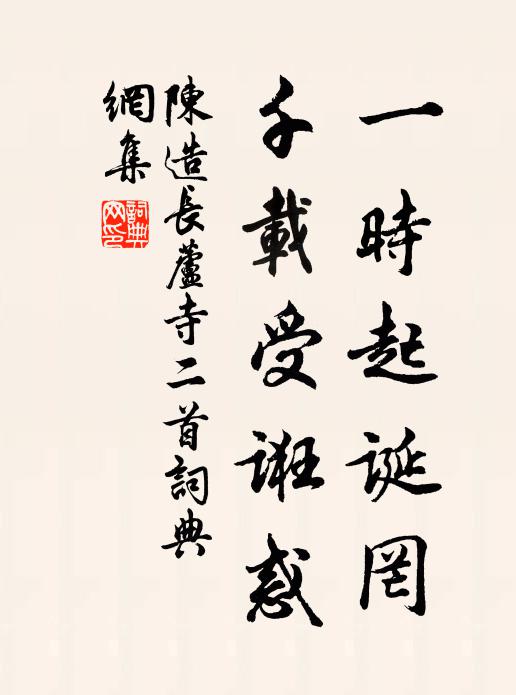 一時起誕罔
千載受誑惑
陳造長蘆寺二首詞典
網集
詞典
网印